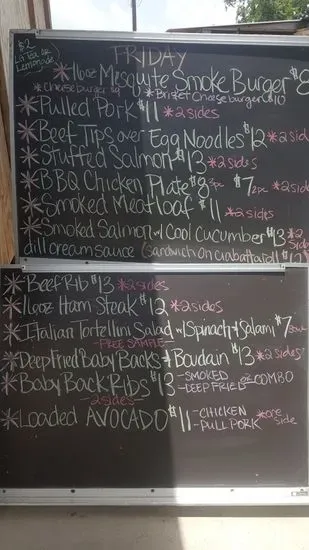 $2
LG TEA OR
Lemonade
FRIDAY
*11oz Mesquite Smoke Burger $8
*Cheeseburger $9 *Brisket Cheeseburger $10
*Pulled Pork $11 *2 sides
*Beef Tips over Egg Noodles $12 *2 sides
*Stuffed Salmon $13 *2 sides
*BBQ Chicken Plate $8 3pc $7 2pc *2 side
*Smoked Meatloaf $11 *2 sides
*Smoked Salmon w/ Cool Cucumber $13 *2 Sides
dill cream sauce (sandwich on ciabatta roll $12)
*Beef Rib $13 *2 sides
*16oz Ham Steak $12 *2 sides
*Italian Tortellini Salad w/ Spinach & Salami $7
-FREE SAMPLE-
*Deep Fried Baby Backs & Boudain $13 *2 sides
*Baby Back Ribs $13 -SMOKED -DEEP FRIED or COMBO
-2 sides-
*Loaded AVOCADO $11 -CHICKEN -PULL PORK *one side